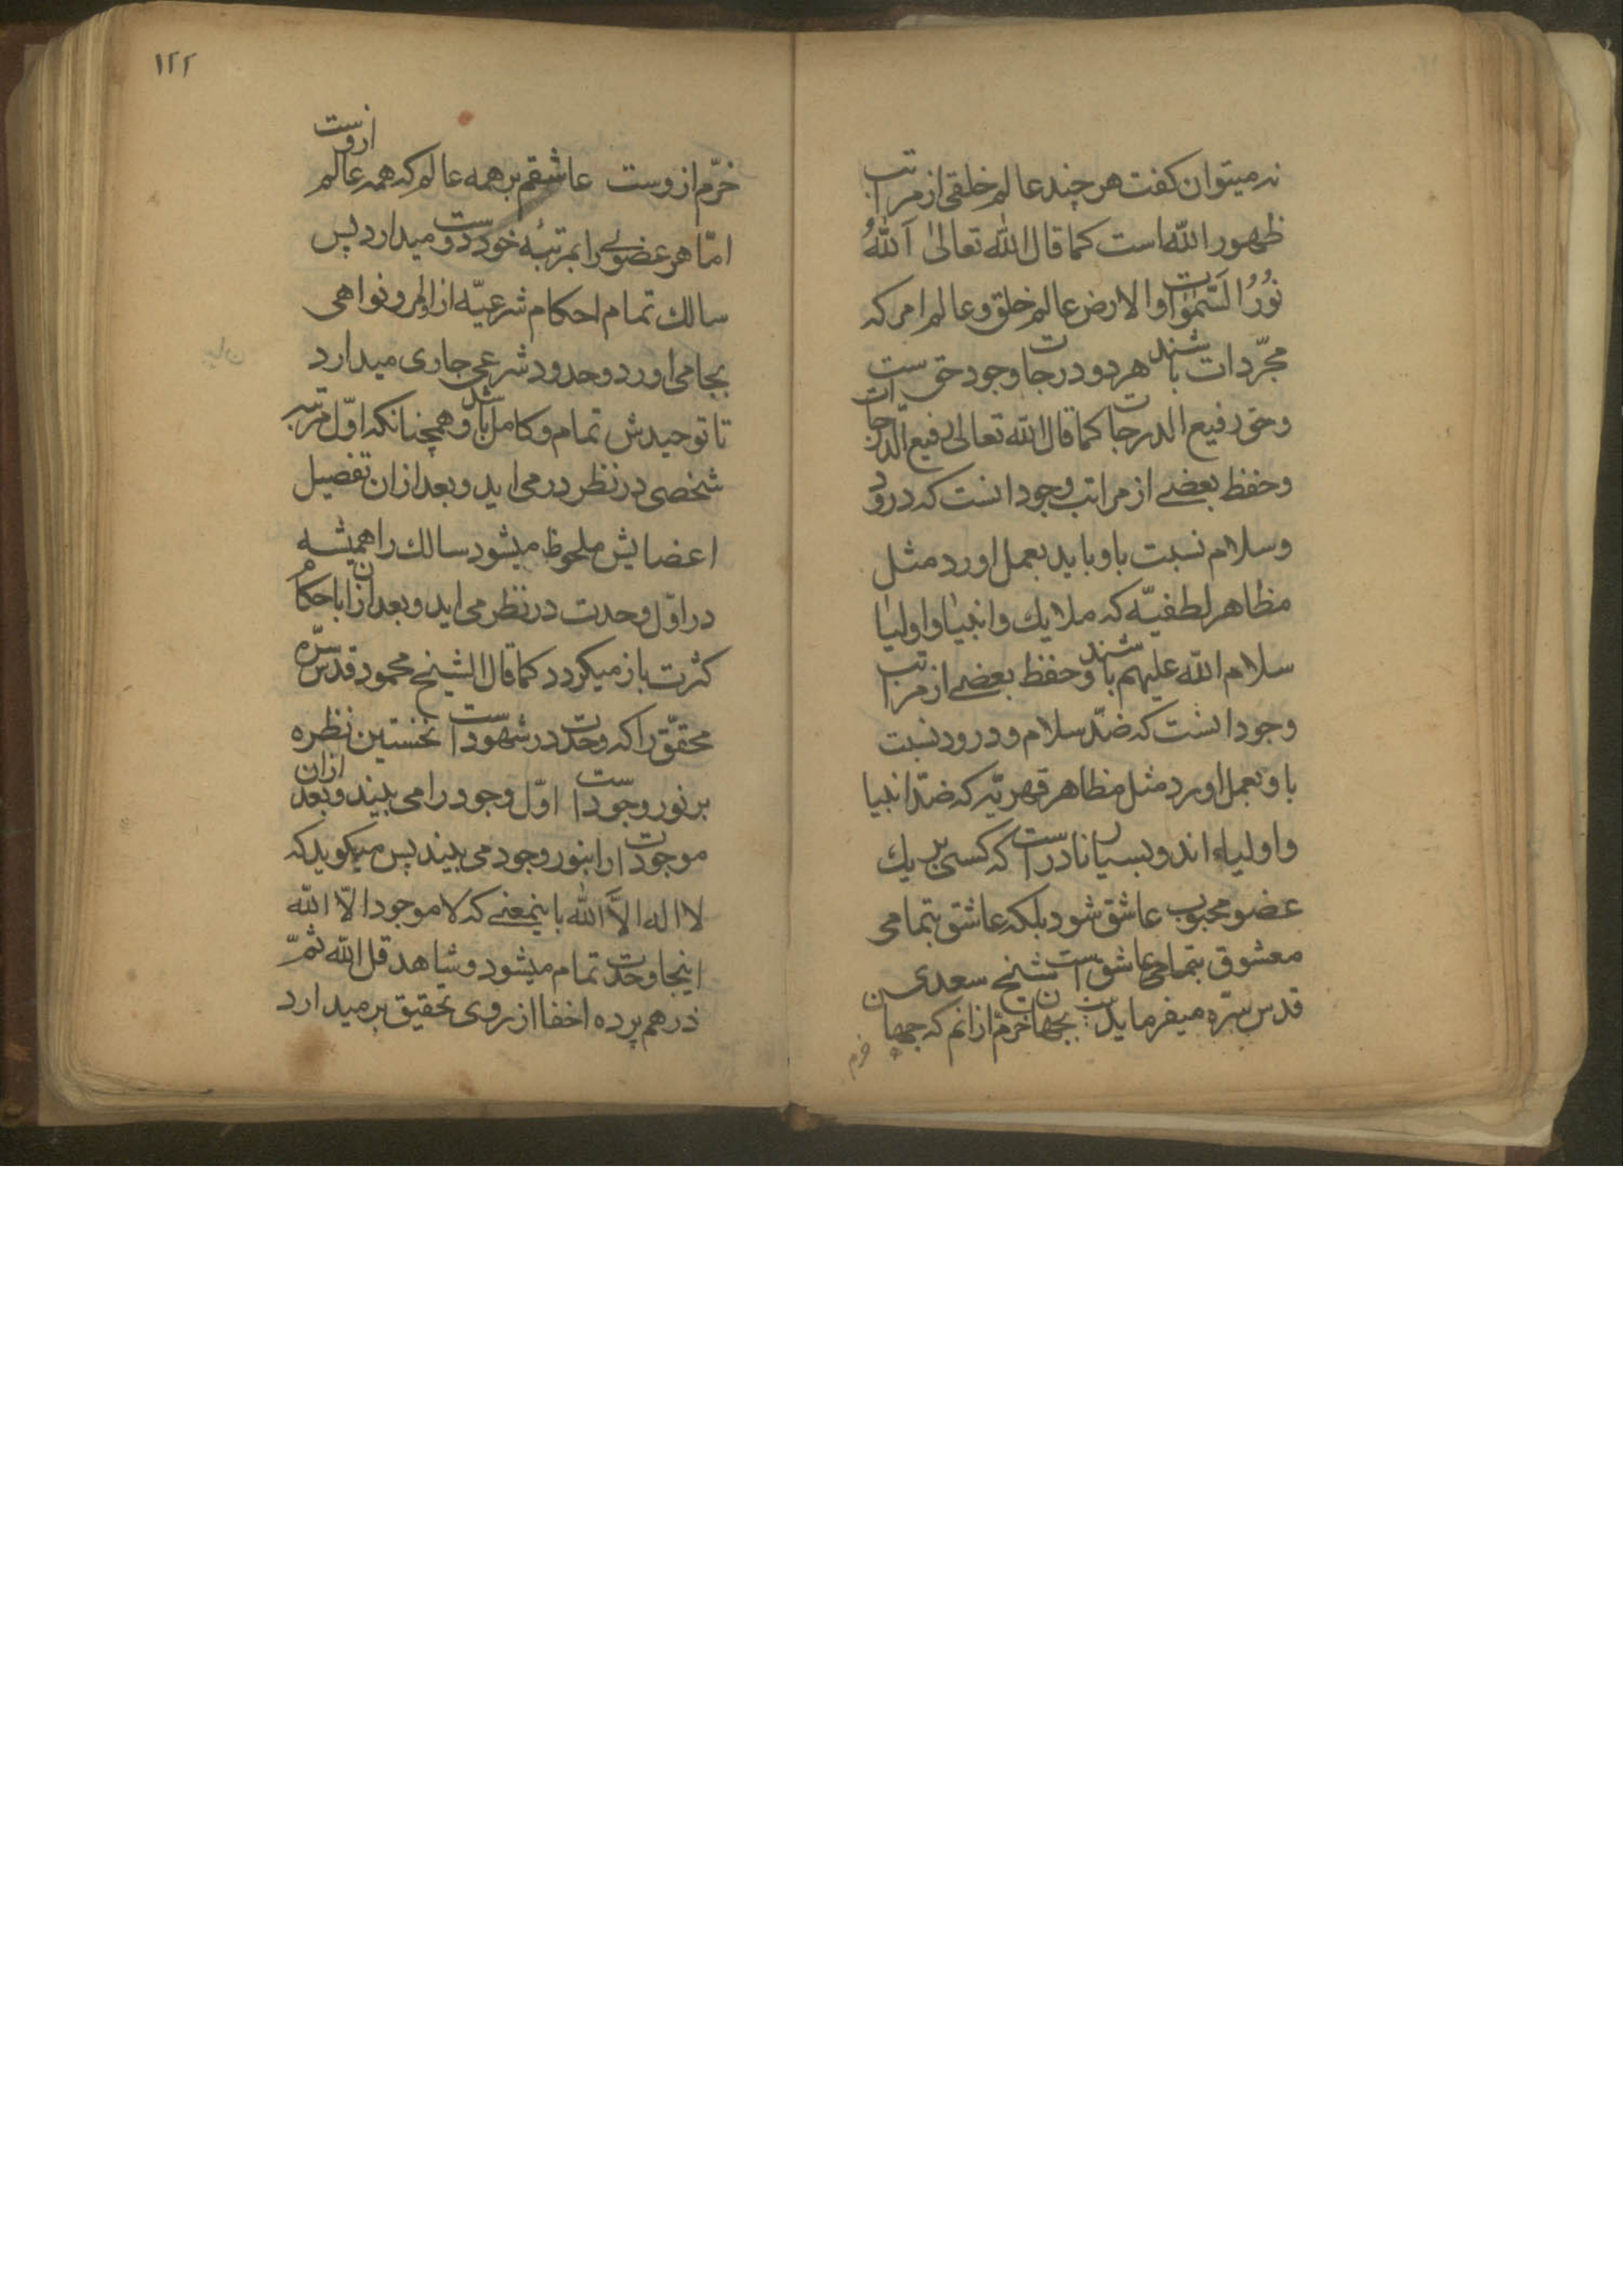 نه میتوان کفت هر چند عالم خلقی از مراتب
ظهور الله است کما قال الله تعالی اَللّٰهُ
نُوْرُ السَّمٰوات والارض عالم خلق و عالم امر که
مجرّدات باشند هر دو درجات وجود حق ست
و حق رفیع الدرجات کما قال الله تعالی رفیع الدّرجات
و حفظ بعضے از مراتب وجود انست که درود
و سلام نسبت باو باید بعمل اورد مثل
مظاهر لطفیّه که ملایك و انبیا و اولیا
سلام الله علیهم باشند و حفظ بعضے از مراتب
وجود انست که ضدّ سلام و درود نسبت
باو بعمل اورد مثل مظاهر قهریّه که ضدّ انبیا
و اولیاء اند و بسیار نادر است که کسی بر یك
عضو محبوب عاشق شود بلکه عاشق بتمامی
معشوق بتمامی عاشق است شیخ سعدی
قدس سرّه میفرماید بجهان خرّم از انم که جهان
خرم
۱۲۲
خرّم ازوست عاشقم بر همه عالم که همه عالم ازوست
امّا هر عضوی را بمرتبۀ خود دوست میدارد پس
سالك تمام احکام شرعیّه از اوامر و نواهی
بجا می اورد و حدود شرعی جاری میدارد
تا توحیدش تمام و کامل باشد و همچنانکه اوّل مرتبه
شخصی در نظر در می اید و بعد از ان تفصیل
اعضایش ملحوظ میشود سالك را همیشه
در اوّل وحدت در نظر می اید و بعد از ان باحکام
کثرت باز میکردد کما قال الشیخ محمود قدس سرّه
محقّق را که وحدت در شهود است نخستین نظره
بر نور وجود است اوّل وجود را می بیند و بعد ازان
موجودات را بنور وجود می بیند پس میکوید که
لا اله الاّ الله باینمعنے که لا موجود الاّ الله
اینجا وحدت تمام میشود و شاهد قل الله ثمّ
ذرهم پرده اخفا از روی تحقیق بر میدارد